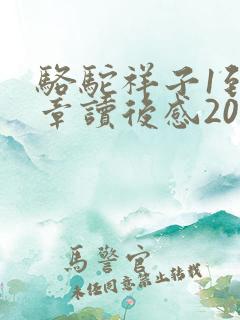 駱駝祥子1到
章讀後感20
馬警官
未經同意禁止轉載